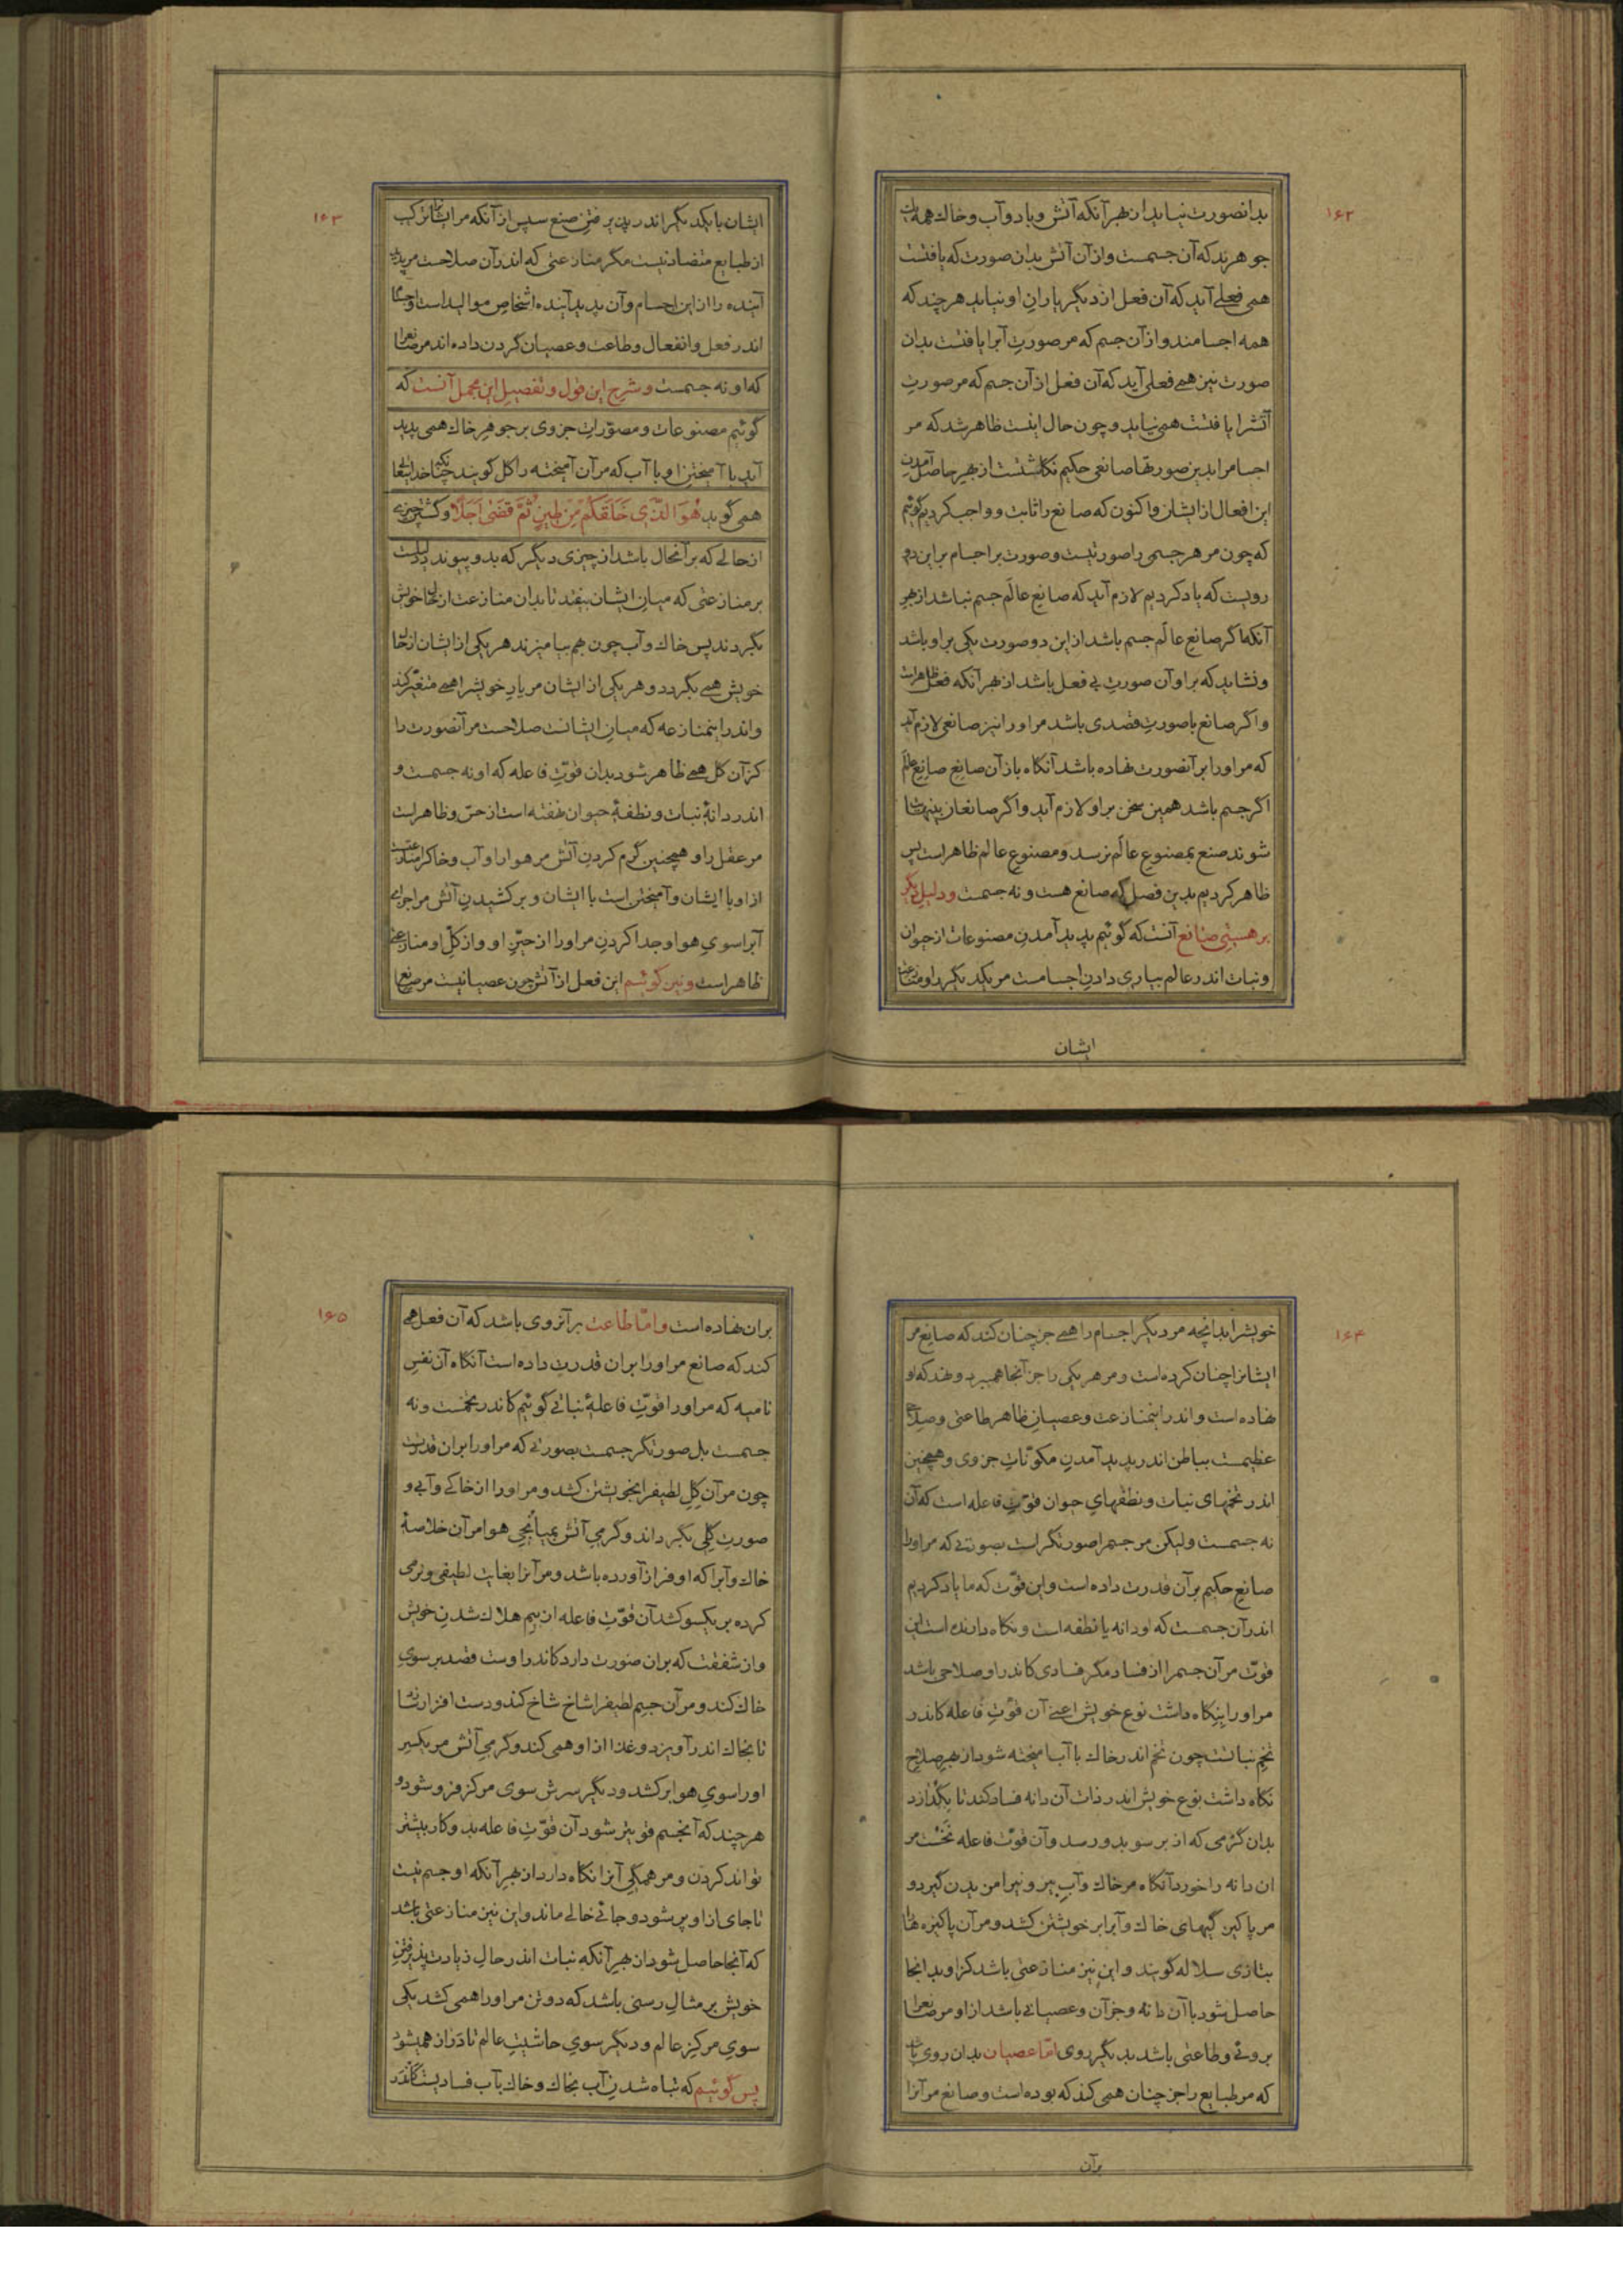 ۱۶۲
بدانصورت نیاید از بهر آنکه آتش و باد و آب و خاک همه یک
جوهرند که آن جسمست و از آن آتش بدان صورت که یافتست
همی فعلی آید که آن فعل از دیگر یاران او نیاید هر چند که
همه اجسامند و از آن جسم که مر صورتِ آبرا یافتست بدان
صورت نیز همی فعلی آید که آن فعل از آن جسم که مر صورت
آتشرا یافتست همی نیاید و چون حال اینست ظاهر شد که مر
اجسامرا بدین صورتها صانعی حکیم نگاشتست از بهر حاصل آمدن
این افعال از ایشان و اکنون که صانع را ثابت و واجب کردیم گوئیم
که چون مر هر جسمی را صورتیست و صورت بر اجسام بر این دو
رویست که یاد کردیم لازم آید که صانع عالَم جسم نباشد از بهر
آنکه اگر صانع عالَم جسم باشد از این دو صورت یکی بر او باشد
و نشاید که بر او آن صورتِ بی فعل باشد از بهر آنکه فعل ظاهر است
و اگر صانع با صورتِ قصدی باشد مر او را نیز صانعی لازم آید
که مر او را بر آنصورت نهاده باشد آنگاه باز آن صانعِ صانعِ عالَم
اگر جسم باشد همین سخن بر او لازم آید و اگر صانعان بینهایت
شوند صنع بمصنوعِ عالَم نرسد و مصنوعِ عالم ظاهر است پس
ظاهر کردیم بدین فصل که صانع هست و نه جسمست و دلیلِ دیگر
بر هستیِ صانع آنست که گوئیم پدید آمدنِ مصنوعات از حیوان
و نبات اندر عالم بیاری دادنِ اجسامست مر یکدیگر را و منازعت
ایشان
۱۶۳
ایشان با یکدیگر اندر پذیرفتنِ صنع سپس از آنکه مر ایشانرا ترکیب
از طبایع متضاد نیست مگر منازعتی که اندر آن صلاحست مر پدید
آینده را از این اجسام و آن پدید آینده اشخاصِ موالید است و اجسام
اندر فعل و انفعال و طاعت و عصیان گردن داده اند مر صانعرا
که او نه جسمست و شرحِ این قول و تفصیلِ این مجمل آنست که
گوئیم مصنوعات و مصوّراتِ جزوی بر جوهرِ خاک همی پدید
آید با آمیختنِ او با آب که مر آن آمیخته را گل گویند چنانکه خدایتعالی
همی گوید هُوَ الَّذِی خَلَقَکُمْ مِنْ طِینٍ ثُمَّ قَضَی أَجَلًا و گشتنِ چیزی
از حالے که بر آنحال باشد از چیزی دیگر که بدو پیوندد دلیلست
بر منازعتی که میان ایشان بیفتد تا بدان منازعت از حال خویش
بگردند پس خاک و آب چون بهم بیامیزند هر یکی از ایشان از حال
خویش همی بگردد و هر یکی از ایشان مر یارِ خویشرا همی متغیّر کند
و اندر اینمنازعه که میانِ ایشانست صلاحست مر آنصورت را
کز آن گل همی ظاهر شود بدان قوّتِ فاعله که او نه جسمست و
اندر دانهٔ نبات و نطفهٔ حیوان نهفته است از حسّ و ظاهر است
مر عقل را و همچنین گرم کردنِ آتش مر هوا را و آب و خاکرا منازعتست
از او با ایشان و آمیختن است با ایشان و بر کشیدنِ آتش مر اجزای
آبرا سوی هوا و جدا کردنِ مر او را از حیّزِ او و از کلِّ او منازعتی
ظاهر است و نیز گوئیم این فعل از آتش چون عصیانیست مر صانع
۱۶۴
خویشرا بدانچه مر دیگر اجسام را همی جز چنان کند که صانع مر
ایشانرا چنان کرده است و مر هر یکی را جز آنجا همی برد و نهد که او
نهاده است و اندر اینمنازعت و عصیانِ ظاهر طاعتی و صلاحی
عظیمست بباطن اندر پدید آمدنِ مکوّناتِ جزوی و همچنین
اندر تخمهای نبات و نطفهای حیوان قوّتِ فاعله است که آن
نه جسمست ولیکن مر جسمرا صورتگر است بصورتی که مر او را
صانعِ حکیم بر آن قدرت داده است و این قوّت که ما یاد کردیم
اندر آن جسمست که او دانه یا نطفه است و نگاه دارنده است این
قوّت مر آن جسمرا از فساد مگر فسادی کاندر او صلاحی باشد
مر او را بنگاه داشت نوع خویش اعنی آن قوّتِ فاعله کاندر
تخمِ نباتست چون تخم اندر خاک با آب آمیخته شود از بهر صلاح
نگاه داشت نوع خویش اندر ذات آن دانه فساد کند تا بگدازد
بدان گرمی که از بر سو بدو رسد و آن قوّت فاعله نَخُست مر
ان دانه را خورد آنگاه مر خاک و آبِ بیرون پیرامن بدن گیرد و
مر پاکیزگیهای خاک و آبرا بر خویشتن کشد و مر آن پاکیزه ها را
بتازی سلاله گویند و این نیز منازعتی باشد کز او بدانجا
حاصل شود با آن دانه و جز آن و عصیانی باشد از او مر صانعرا
بروئی و طاعتی باشد بدیگر روی امّا عصیان بدان روی باشد
که مر طبایع را جز چنان همی کند که بوده است و صانع مر آنرا
برآن
۱۶۵
بران نهاده است و امّا طاعت بر آنروی باشد که آن فعل همی
کند که صانع مر او را بران قدرت داده است آنگاه آن نفسِ
نامیه که مر او را قوّتِ فاعلهٔ نباتی گوئیم کاندر تخمست و نه
جسمست بل صورتگرِ جسمست بصورتی که مر او را بران قدرتست
چون مر آن گِلِ لطیفرا بخویشتن کشد و مر او را از خاکی و آبی و
صورتِ گِلی بگرداند و گرمیِ آتش بمیانجیِ هوا مر آن خلاصهٔ
خاک و آبرا که او فراز آورده باشد و مر آنرا بغایت لطیفی و نرمی
کرده بر یکسو کشد آن قوّتِ فاعله از بیم هلاک شدنِ خویش
و از شفقت که بران صورت دارد کاندر اوست قصد بر سوی
خاک کند و مر آن جسمِ لطیفرا شاخ شاخ کند و دست افزار سازد
تا بخاک اندر آویزد و غذا از او همی کند و گرمیِ آتش مر یکسر
او را سوی هوا بر کشد و دیگر سرش سوی مرکز فرو شود و
هر چند که آنجسم قویتر شود آن قوّتِ فاعله بدو کار بیشتر
تواند کردن و مر همگیِ آنرا نگاه دارد از بهر آنکه او جسم نیست
تا جای از او پر شود و جائی خالی ماند و این نیز منازعتی باشد
که آنجا حاصل شود از بهر آنکه نبات اندر حالِ زیادت پذیرفتنِ
خویش بر مثالِ رسنی باشد که دو تن مر او را همی کشد یکی
سوی مرکزِ عالم و دیگر سوی حاشیتِ عالم تا دراز همی شود
پس گوئیم که تباه شدنِ آب بخاک و خاک بآب فسادیست کاندر